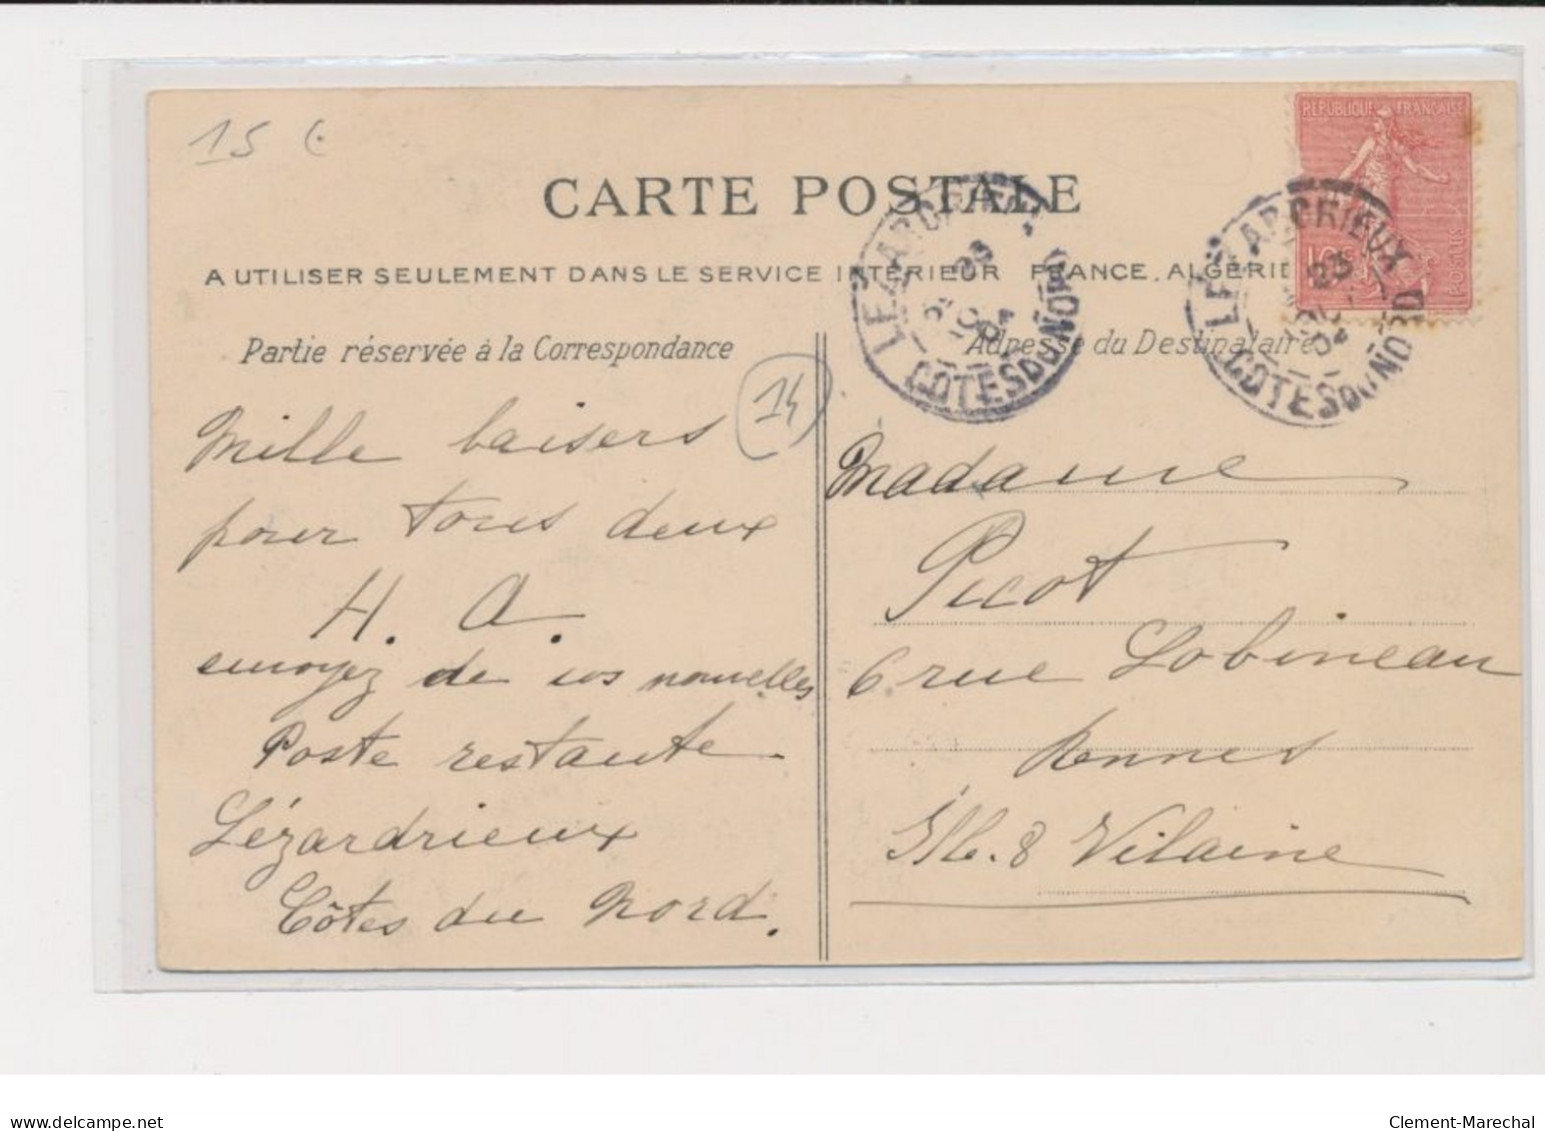 15 €
CARTE POSTALE
A UTILISER SEULEMENT DANS LE SERVICE INTÉRIEUR FRANCE, ALGÉRIE
Partie réservée à la Correspondance
14
Mille baisers
pour tous deux
H. A.
envoyez de vos nouvelles
Poste restante
Lézardrieux
Côtes du Nord.
REPUBLIQUE FRANÇAISE
10c
POSTES
LEZARDRIEUX
COTES DU NORD
LEZARDRIEUX
23
04
COTES DU NORD
Adresse du Destinataire
Madame
Picot
6 rue Lobineau
Rennes
Ille. & Vilaine
delcampe.net
Clement-Marechal